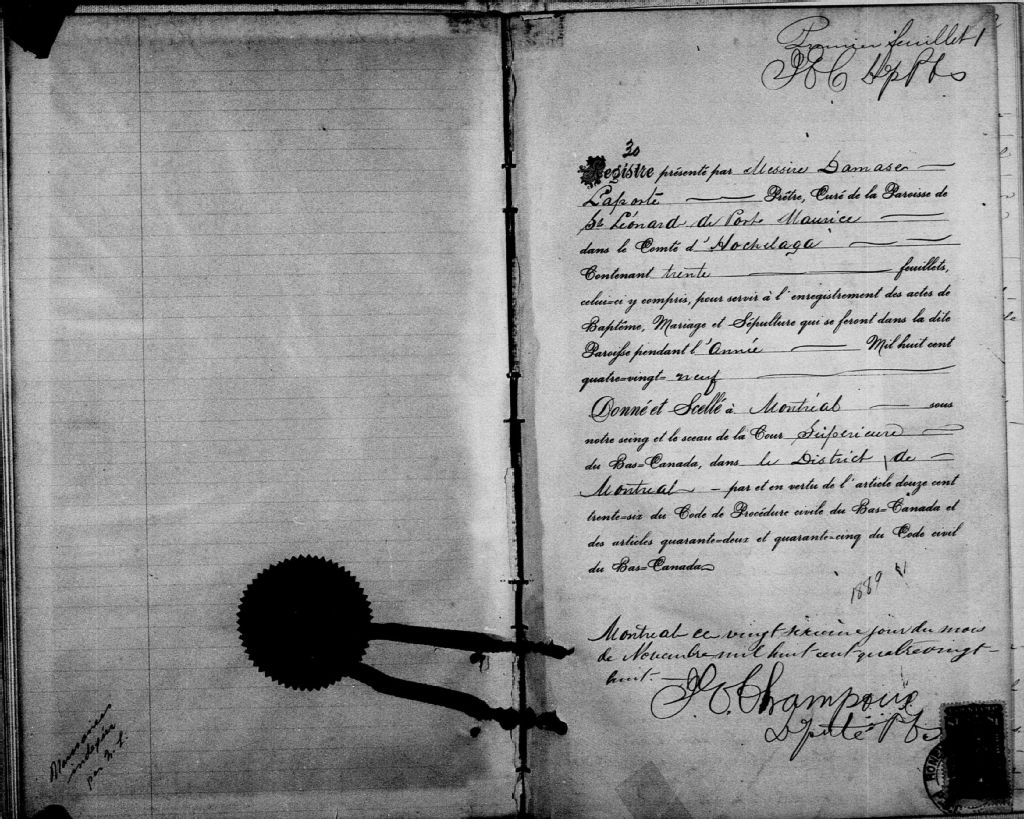 Premier feuillet 1
30
Registre présenté par Messire Damase
Laporte Prêtre, Curé de la Paroisse de
St Léonard de Port Maurice
dans le Comté d'Hochelaga
Contenant trente feuillets,
celui-ci y compris, pour servir à l'enregistrement des actes de
Baptême, Mariage et Sépulture qui se feront dans la dite
Paroisse pendant l'Année Mil huit cent
quatre-vingt-neuf
Donné et Scellé à Montréal sous
notre seing et le sceau de la Cour Supérieure
du Bas-Canada, dans le District de
Montréal - par et en vertu de l'article douze cent
trente-six du Code de Procédure civile du Bas-Canada et
des articles quarante-deux et quarante-cinq du Code civil
du Bas-Canada
1889
Montreal ce vingt sixieme jour du mois
de Novembre mil huit cent quatrevingt-
huit.
Champoux
Députe
indexées
par